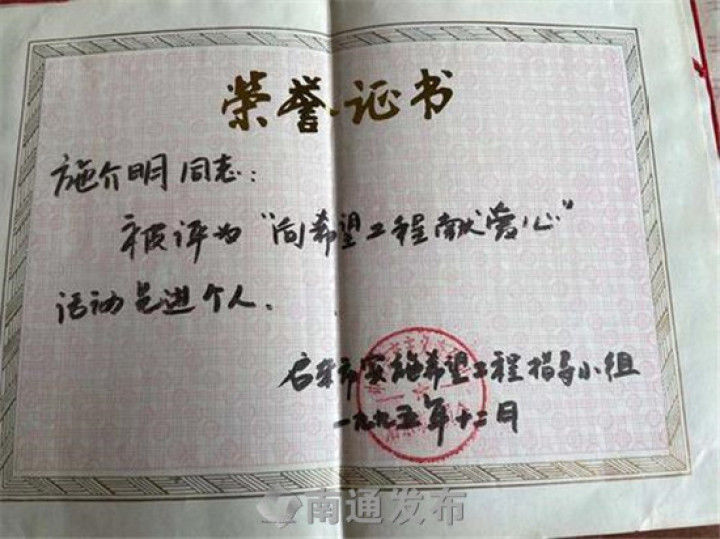 荣誉证书
施介明同志：
被评为“向希望工程献爱心”
活动先进个人.
启东市实施希望工程指导小组
一九九五年十二月
南通发布